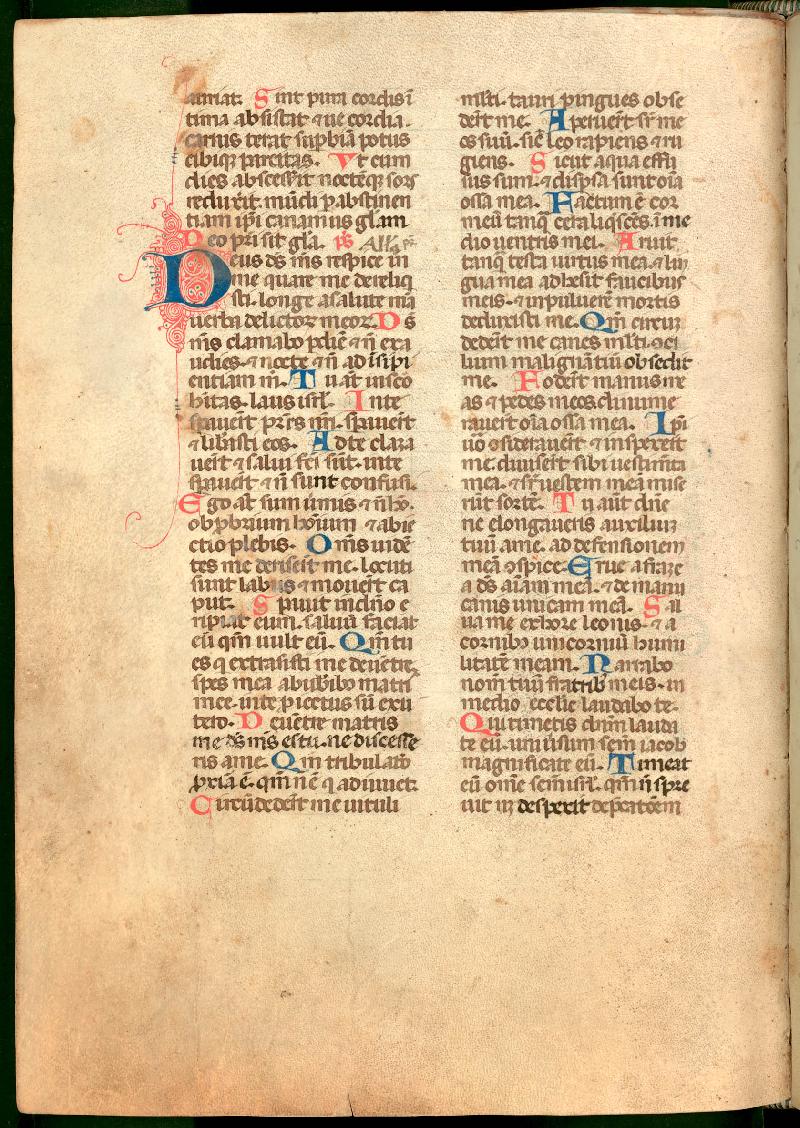 auriat. Sint pura cordis i
tima absistat & ue cordia.
carnis terat supbiā potus
cibiq parcitas. Vt cum
dies abscesserit noctēq sors
reduxit. mūdi p abstinen
tiam ipi canamus gl'am
Deo pri sit gl'a. ps
Deus ds ms respice in
me quare me dereliq
sti. longe a salute mā
uerba delictor meor. Ds
ms clamabo p diē & n̄ exa
udies. & nocte & n̄ ad isipi
entiam m. Tu aūt in sco
bitas. laus isrl. In te
spauert pres nri. spauert
& libasti eos. Ad te clama
uert & salui fci sūt. in te
spauert & n̄ sunt confusi.
Ego at sum umis & n̄ ho.
obpbrium hoium & abie
ctio plebis. Oms uidē
tes me derisert me. locuti
sunt labiis & mouert ca
put. Spauit in dno e
ripiat eum. saluū faciat
eū qm uult eū. Qm tu
es q extraxisti me de uētre.
spes mea ab ubibꝰ matri
mee. in te piectus sū ex u
tero. De uētre matris
me ds ms es tu. ne discesse
ris a me. Qm tribulatō
pxia ē. qm n ē q adiuuet.
Circūdedert me uituli
mlti. tauri pingues obse
dert me. Aperuert sr me
os suū. sic leo rapiens & ru
giens. Sicut aqua effu
sus sum. & dispsa sunt oīa
ossa mea. Factum ē cor
meū tanq cera liqscēs. i me
dio uentris mei. Aruit
tanq testa uirtus mea. & lin
gua mea adhesit faucibus
meis. & in puluerē mortis
deduxisti me. Qm circū
dedert me canes mlti. oci
lium malignātiū obsedit
me. Foderт manus me
as & pedes meos. dinume
rauert oīa ossa mea. Ipi
uō osiderauert & inspexert
me. diuisert sibi uestimta
mea. & sr uestem meā mise
rūt sortē. Tu aūt dne
ne elongaueris auxiliū
tuū a me. ad defensionem
meā ospice. Erue a framea
a ds aīam meā. & de manu
canis unicam meā. Sal
ua me ex hore leonis. & a
cornibꝰ unicorniū humi
litatē meam. Narrabo
nom tuū fratribꝰ meis. in
medio ecclie laudabo te.
Qui timetis dnm lauda
te eū. uniusum sem iacob
magnificate eū. Timeat
eū omē semē isrl. qm n̄ spre
uit nꝫ despexit depcatōem